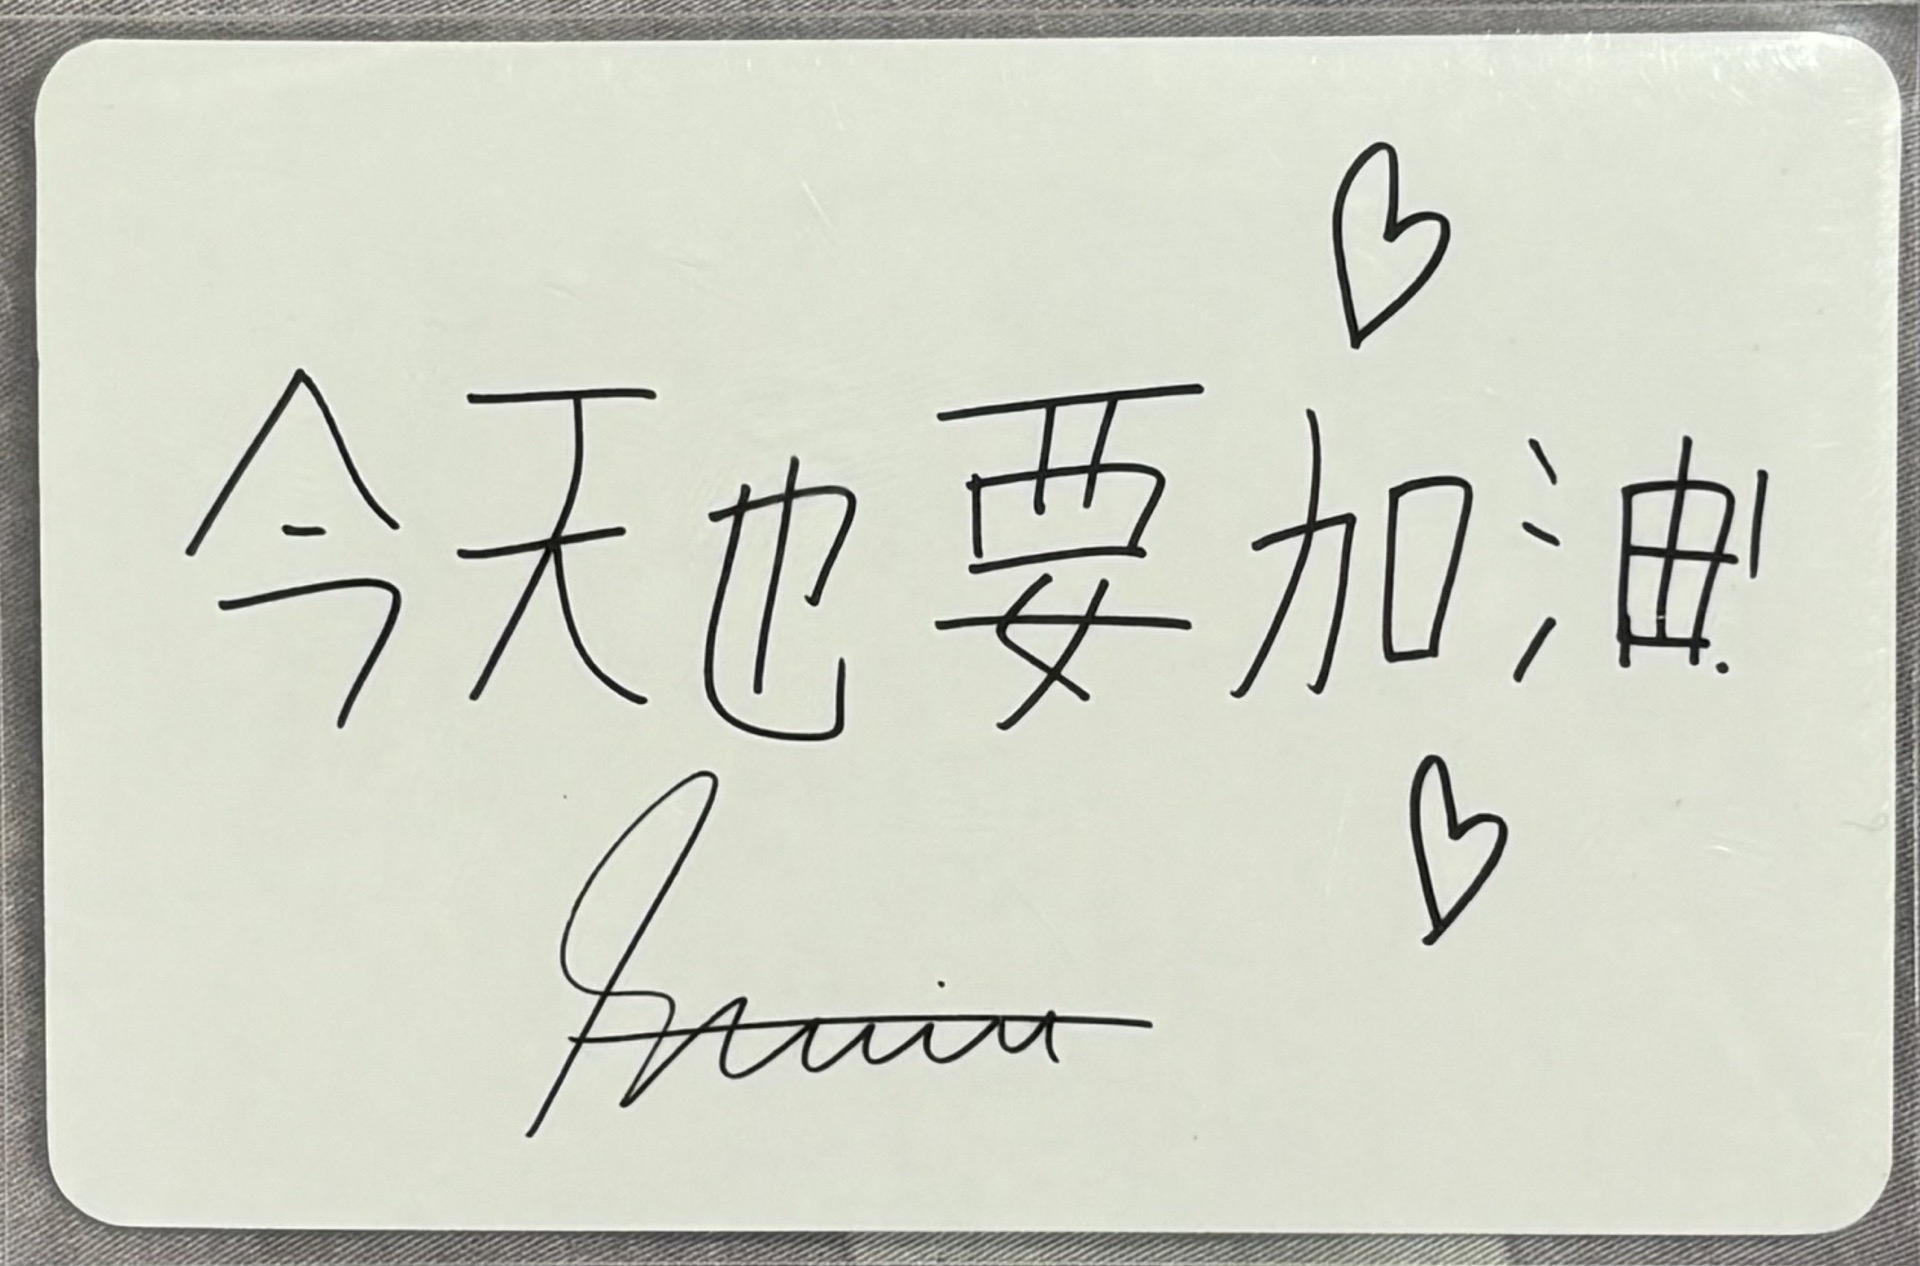 今天也要加油!